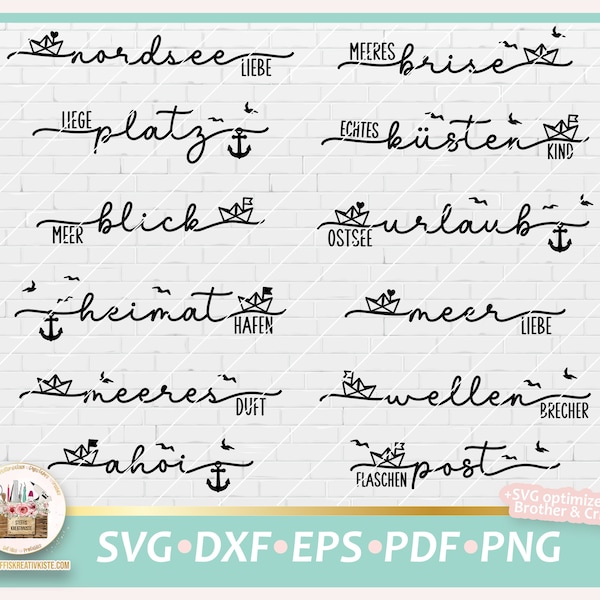 nordsee LIEBE
MEERES brise
LIEGE platz
ECHTES küsten KIND
MEER blick
OSTSEE urlaub
heimat HAFEN
meer LIEBE
meeres DUFT
wellen BRECHER
ahoi
FLASCHEN post
+SVG optimize
Brother & Cr
STEFFIS
KREATIVKISTE
SVG•DXF•EPS•PDF•PNG
FFISKREATIVKISTE.COM